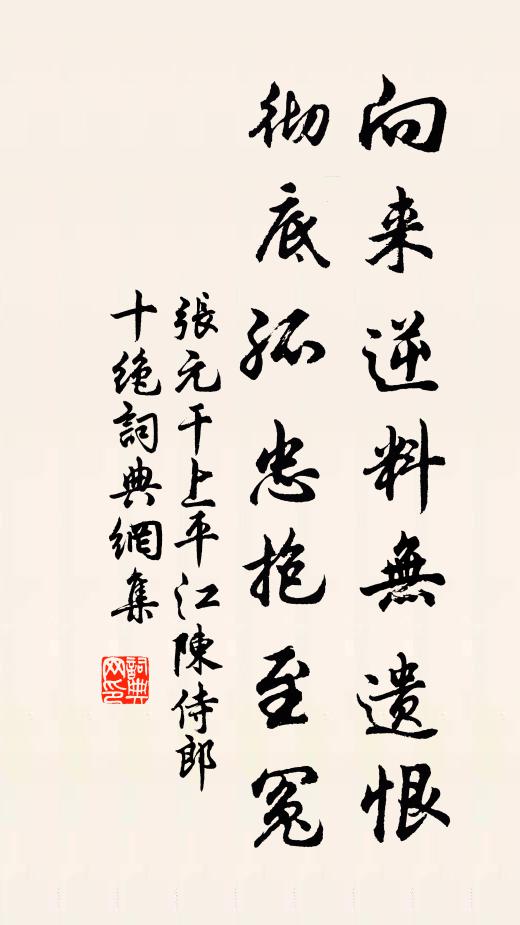 向来逆料無遺恨
彻底孤忠抱至冤
張元干上平江陳侍郎
十绝詞典網集
詞典网印